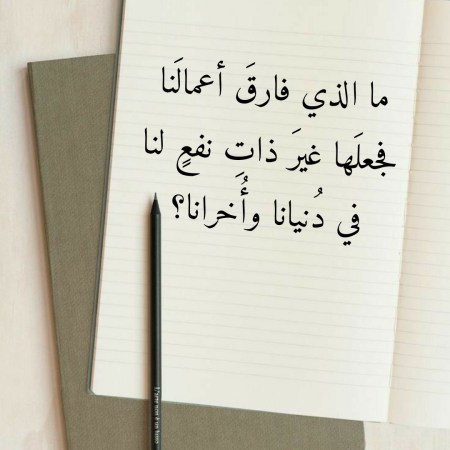 ما الذي فارقَ أعمالَنا
فجعلَها غيرَ ذاتِ نفعٍ لنا
في دُنيانا وأُخرانا؟